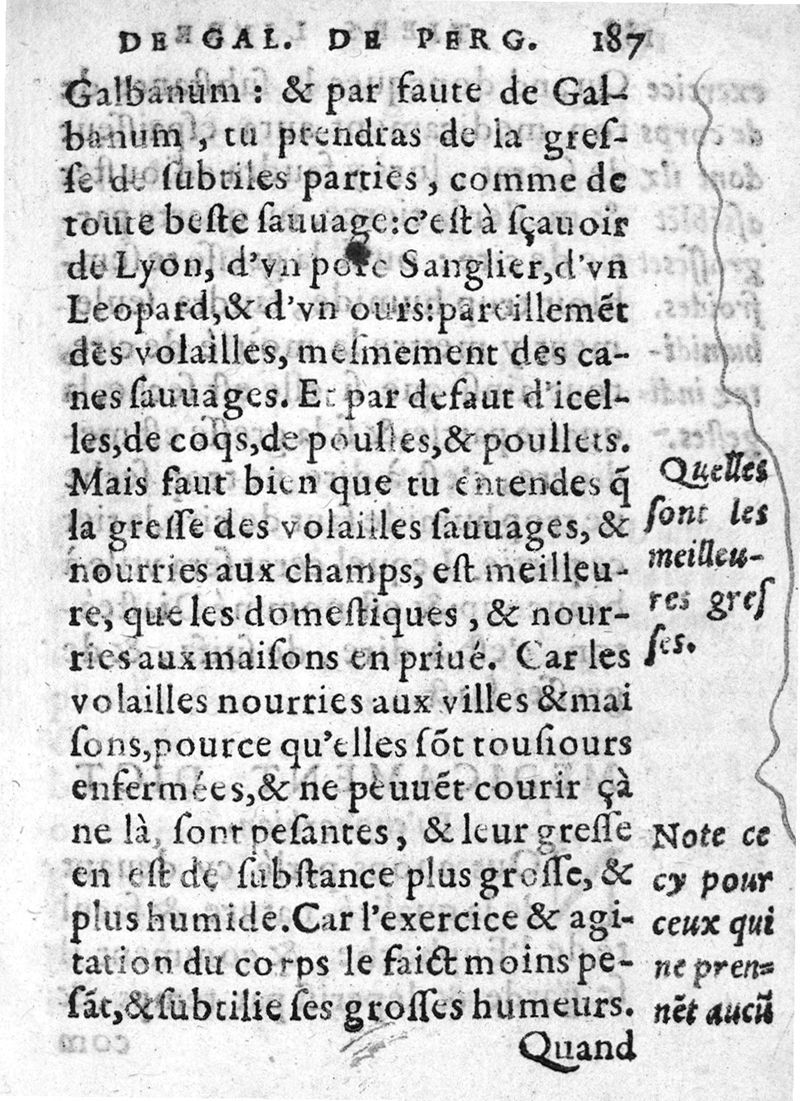 DE GAL. DE PERG. 187
Galbanum : & par faute de Gal-
banum , tu prendras de la greſ-
ſe de ſubtiles parties , comme de
toute beſte ſauuage:c'eſt à ſçauoir
de Lyon, d'vn porc Sanglier,d'vn
Leopard,& d'vn ours:pareillemẽt
des volailles, meſmement des ca-
nes ſauuages. Et par defaut d'icel-
les,de coqs,de poulles,& poullets.
Mais faut bien que tu entendes q̃
la greſſe des volailles ſauuages, &
nourries aux champs, eſt meilleu-
re, que les domeſtiques , & nour-
ries aux maiſons en priué. Car les
volailles nourries aux villes & mai
ſons,pource qu'elles ſõt touſiours
enfermées,& ne peuuẽt courir çà
ne là, ſont peſantes, & leur greſſe
en eſt de ſubſtance plus groſſe, &
plus humide.Car l'exercice & agi-
tation du corps le faict moins pe-
ſãt,& ſubtilie ſes groſſes humeurs.
Quand
Quelles
ſont les
meilleu-
res greſ
ſes.
Note ce
cy pour
ceux qui
ne pren-
nẽt aucũ